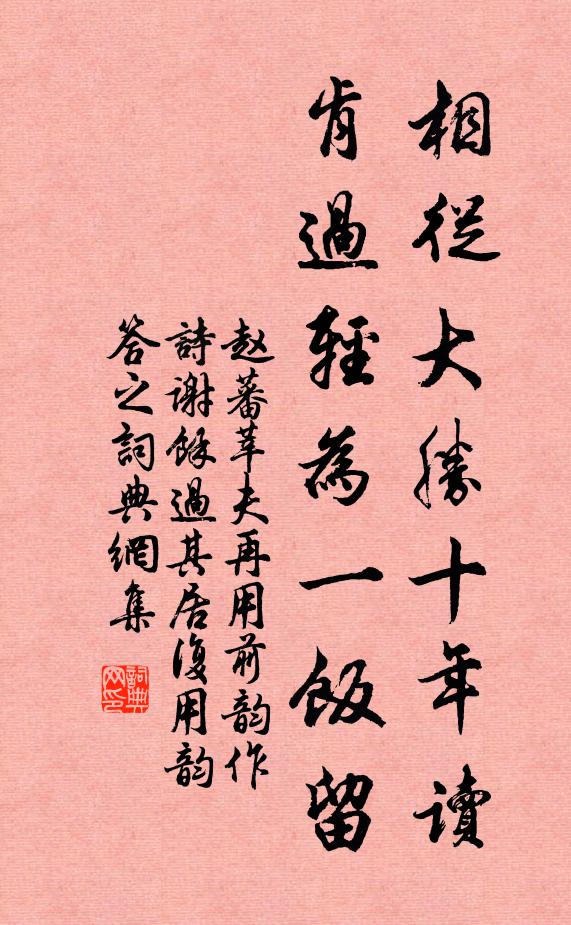 相從大勝十年讀
肯過輕為一飯留
赵蕃莘夫再用前韵作
詩謝餘過其居復用韵
答之詞典網集
詞典网印